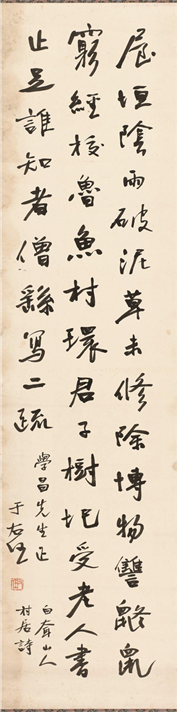 屋垣陰雨破泥草未修除博物讐鼮鼠
窮經校魯魚村環君子樹圯受老人書
止足誰知者僧繇寫二疏
學昌先生正
于右任
白奔山人
村居詩